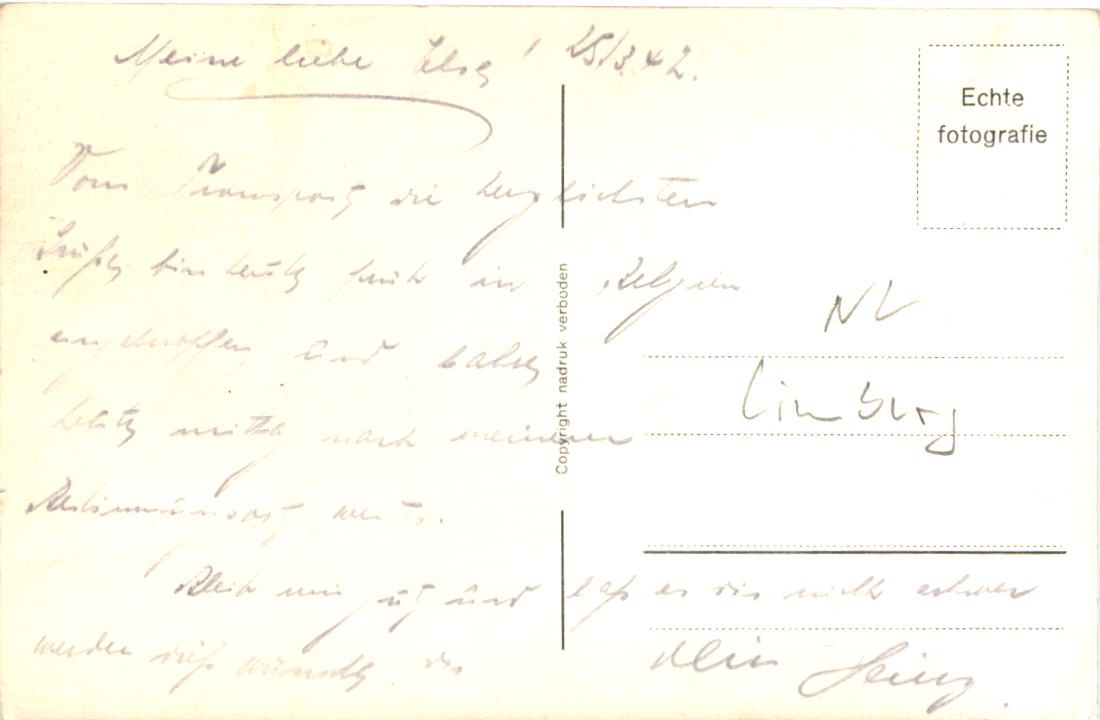 Meine liebe Ilse! 25/3.42.
Vom Transport die herzlichsten
Grüße bin heute früh in Belgien
angetroffen und fahre
heute mittag nach meinem
Bestimmungsort weiter.
Bleib mir gut und laß es dir nicht schwer
werden dies wünscht dir
Dein Heinz.
Echte
fotografie
Copyright nadruk verboden
NL
Limburg